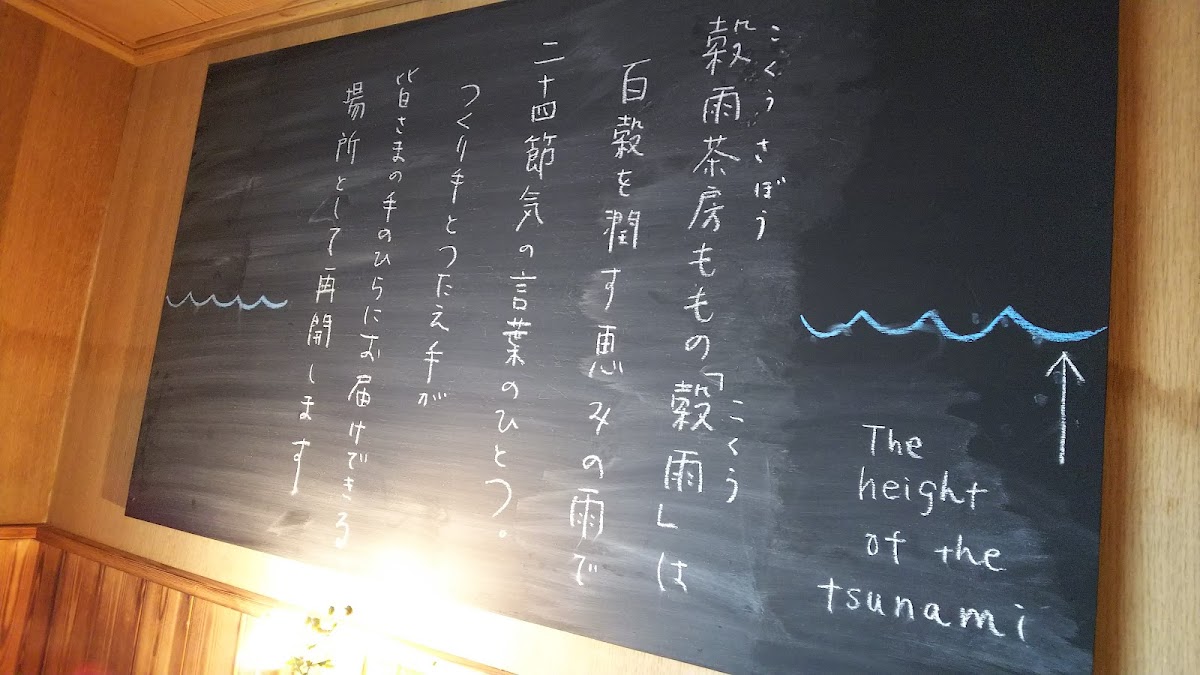 こくうさぼう
穀雨茶房ももの「穀雨」は
こくう
百穀を潤す恵みの雨で
二十四節気の言葉のひとつ。
つくり手とつたえ手が
皆さまの手のひらにお届けできる
場所として再開します
The
height
of the
tsunami